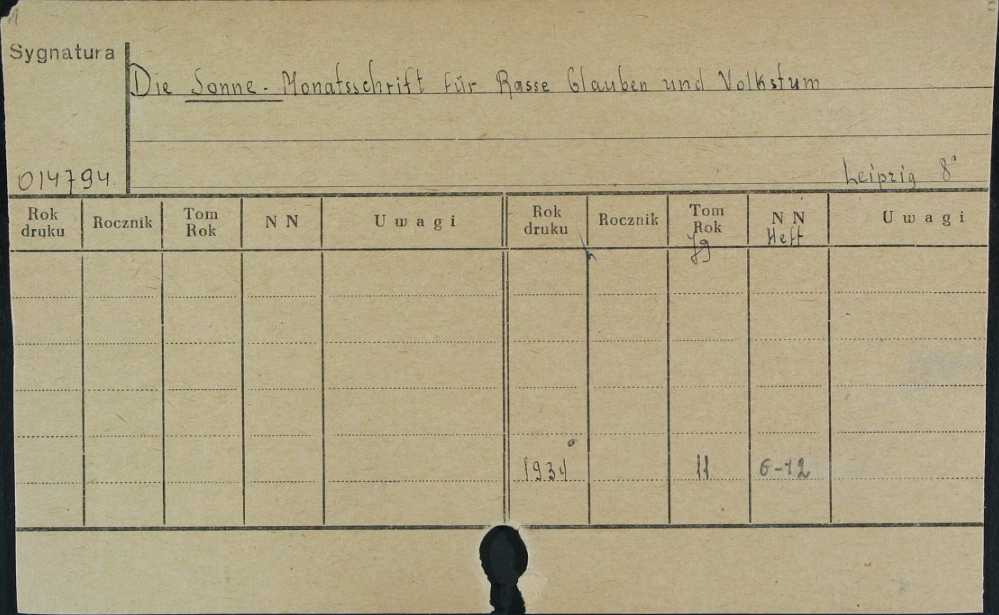 Sygnatura
Die Sonne. Monatsschrift für Rasse Glauben und Volkstum
014794.
Leipzig 8°
Rok druku Rocznik Tom Rok N N Uwagi Rok druku Rocznik Tom Rok N N Uwagi
Jg Heft
1934 11 6-12